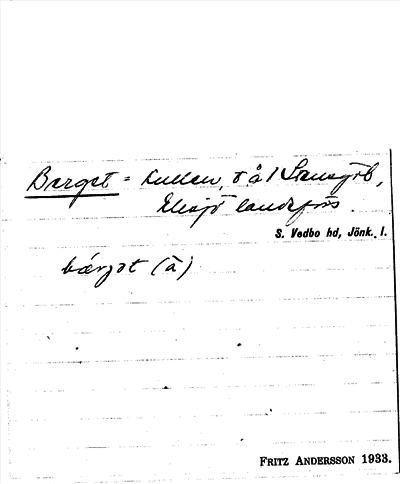 Berget = Kullen, t å 1 Stensjöb,
Eksjö landsförs.
S. Vedbo hd, Jönk. l.
bærjət (à)
FRITZ ANDERSSON 1933.